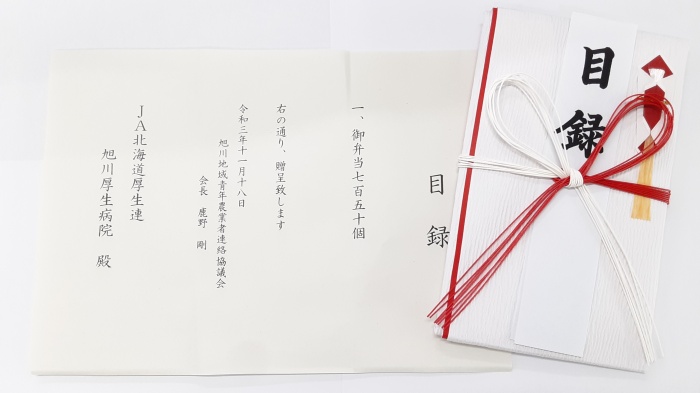 目録
目録
一、御弁当七百五十個
右の通り、贈呈致します
令和三年十一月十八日
旭川地域青年農業者連絡協議会
会長 鹿野 剛
JA北海道厚生連
旭川厚生病院 殿